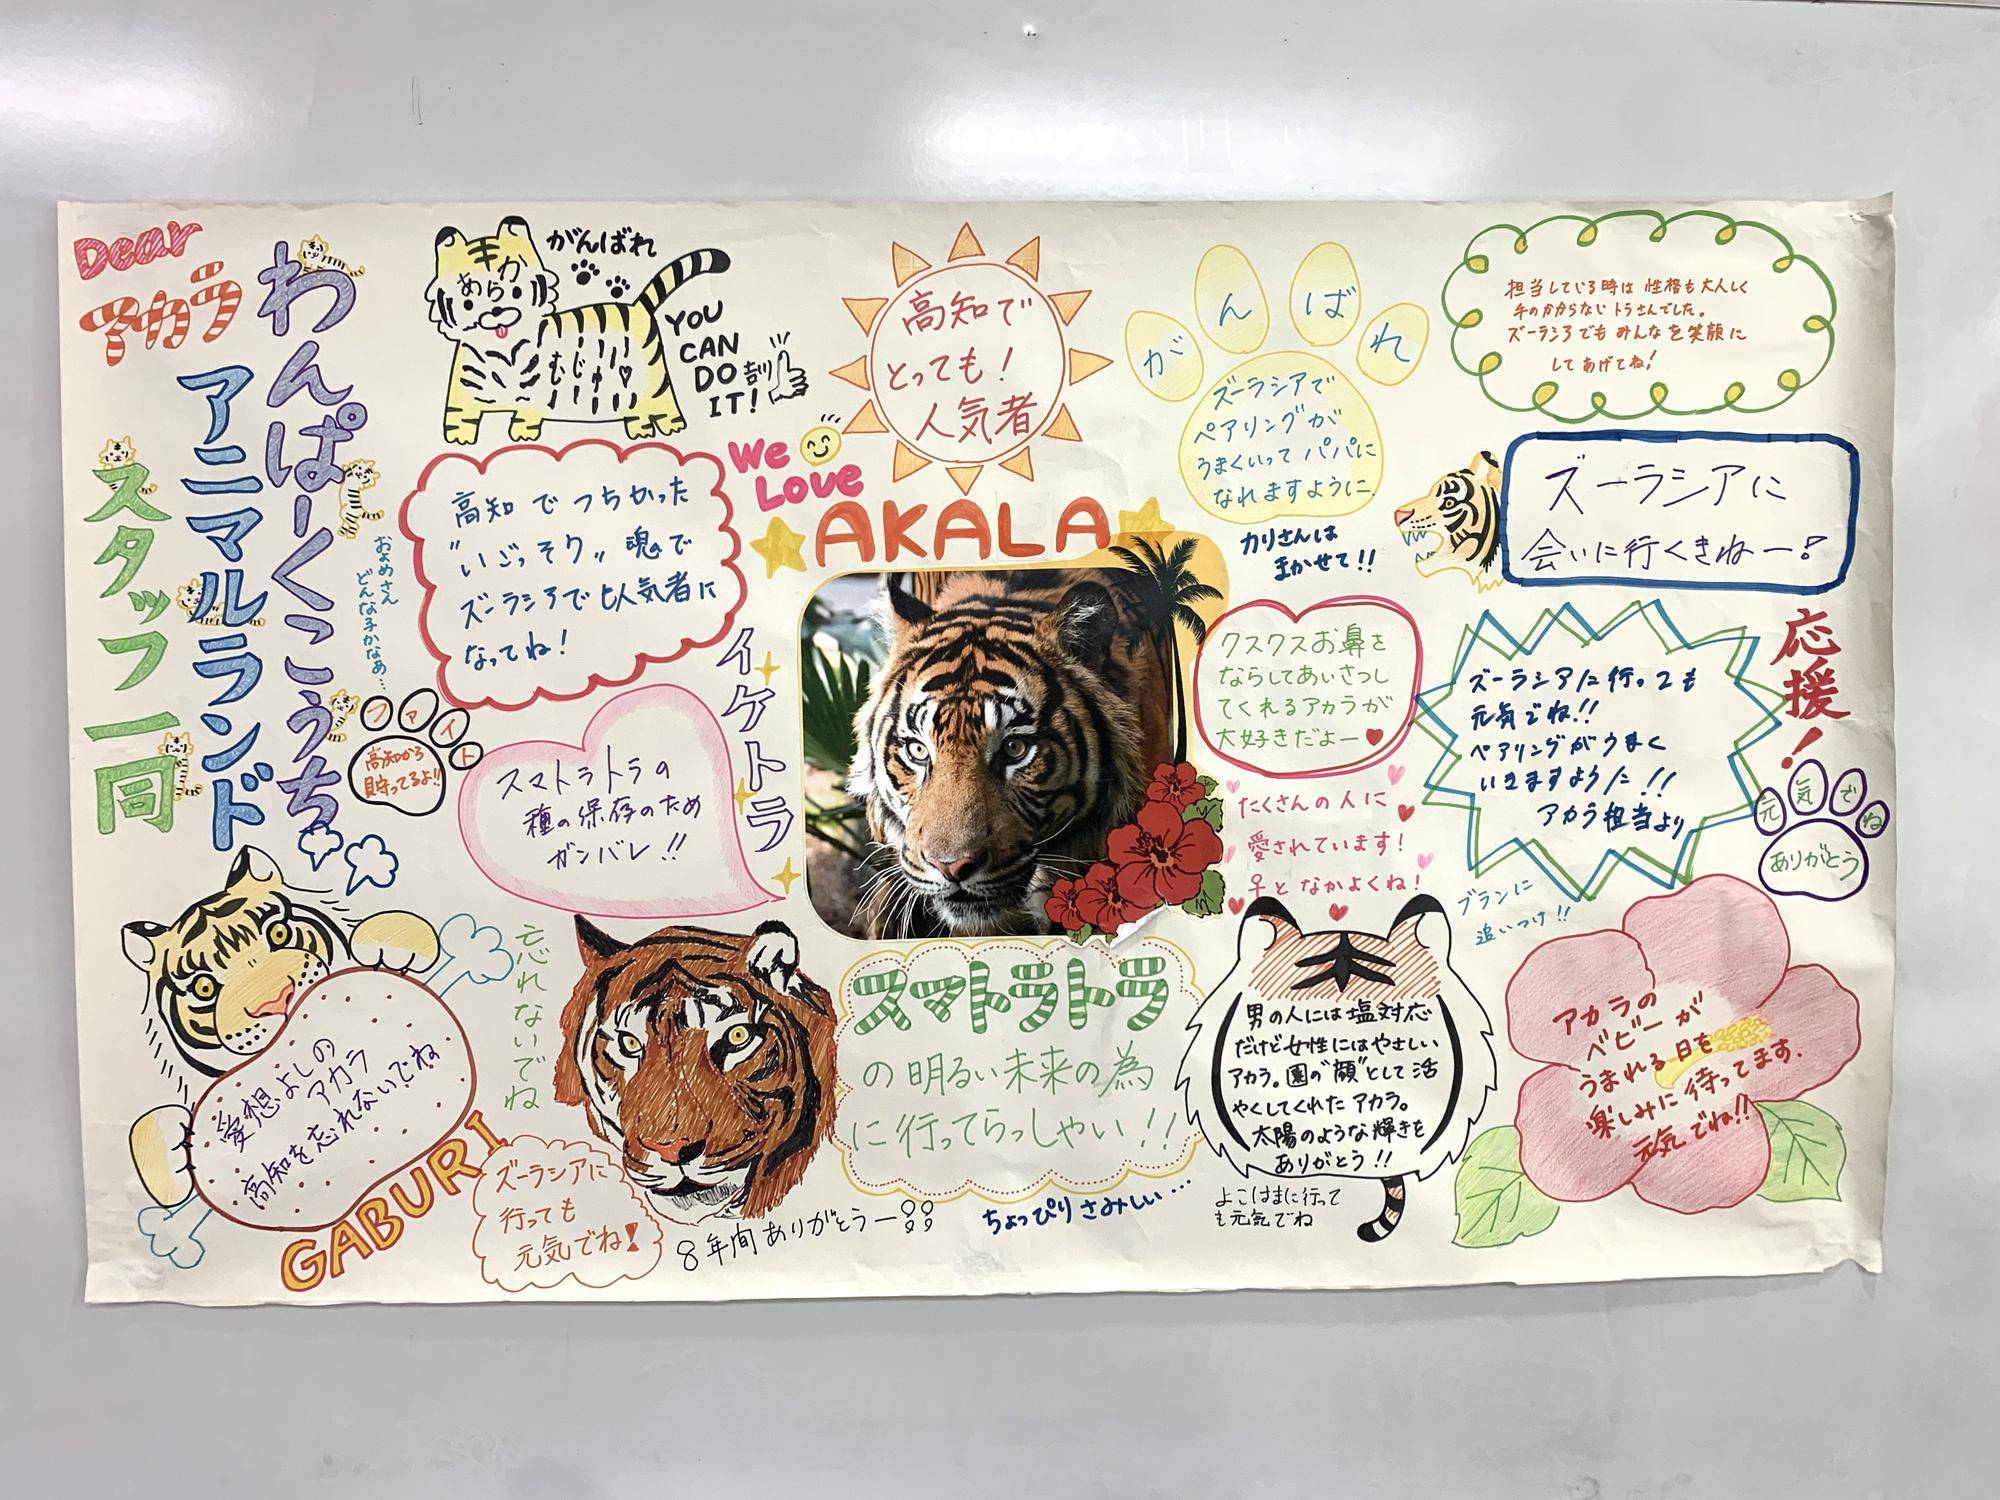 Dear
アカラ
わんぱーくこうち
アニマルランド
スタッフ一同
おぬさん
どんな子かなぁ…
がんばれ
あからか
むじゅり
YOU
CAN
DO
IT!
高知で
とっても!
人気者
がんばれ
ズーラシアで
ペアリングが
うまくいって パパに
なれますように.
担当している時は 性格も大人しく
手のかからない トラさんでした。
ズーラシアでも みんなを笑顔に
してあげてね!
We
Love
AKALA
高知 で つちかった
"いごっそう" 魂で
ズーラシアでも人気者に
なってね!
カリさんは
まかせて!!
ズーラシアに
会いに行くきねー!
イケトラ
ファイト
高知から
貯ってるよ!!
スマトラトラの
種の保存のため
ガンバレ!!
クスクスお鼻を
ならしてあいさつし
てくれるアカラが
大好きだよー
ズーラシアに行っても
元気でね!!
ペアリングがうまく
いきますように!!
アカラ担当より
応援!
元気でね
ありがとう
たくさんの人に
愛されています!
♀となかよくね!
ブランに
追いつけ!!
愛想よしの
アカラ
高知を忘れないでね
GABURI
忘れないでね
ズーラシアに
行っても
元気でね!
8年間ありがとうー
スマトラトラ
の明るい未来の為
に行ってらっしゃい!!
ちょっぴりさみしい…
男の人には塩対応
だけど女性にはやさしい
アカラ。園の"顔"として活
やくしてくれたアカラ。
太陽のような輝きを
ありがとう!!
よこはまに行って
も元気でね
アカラの
ベビーが
うまれる日を
楽しみに待ってます.
元気でね!!